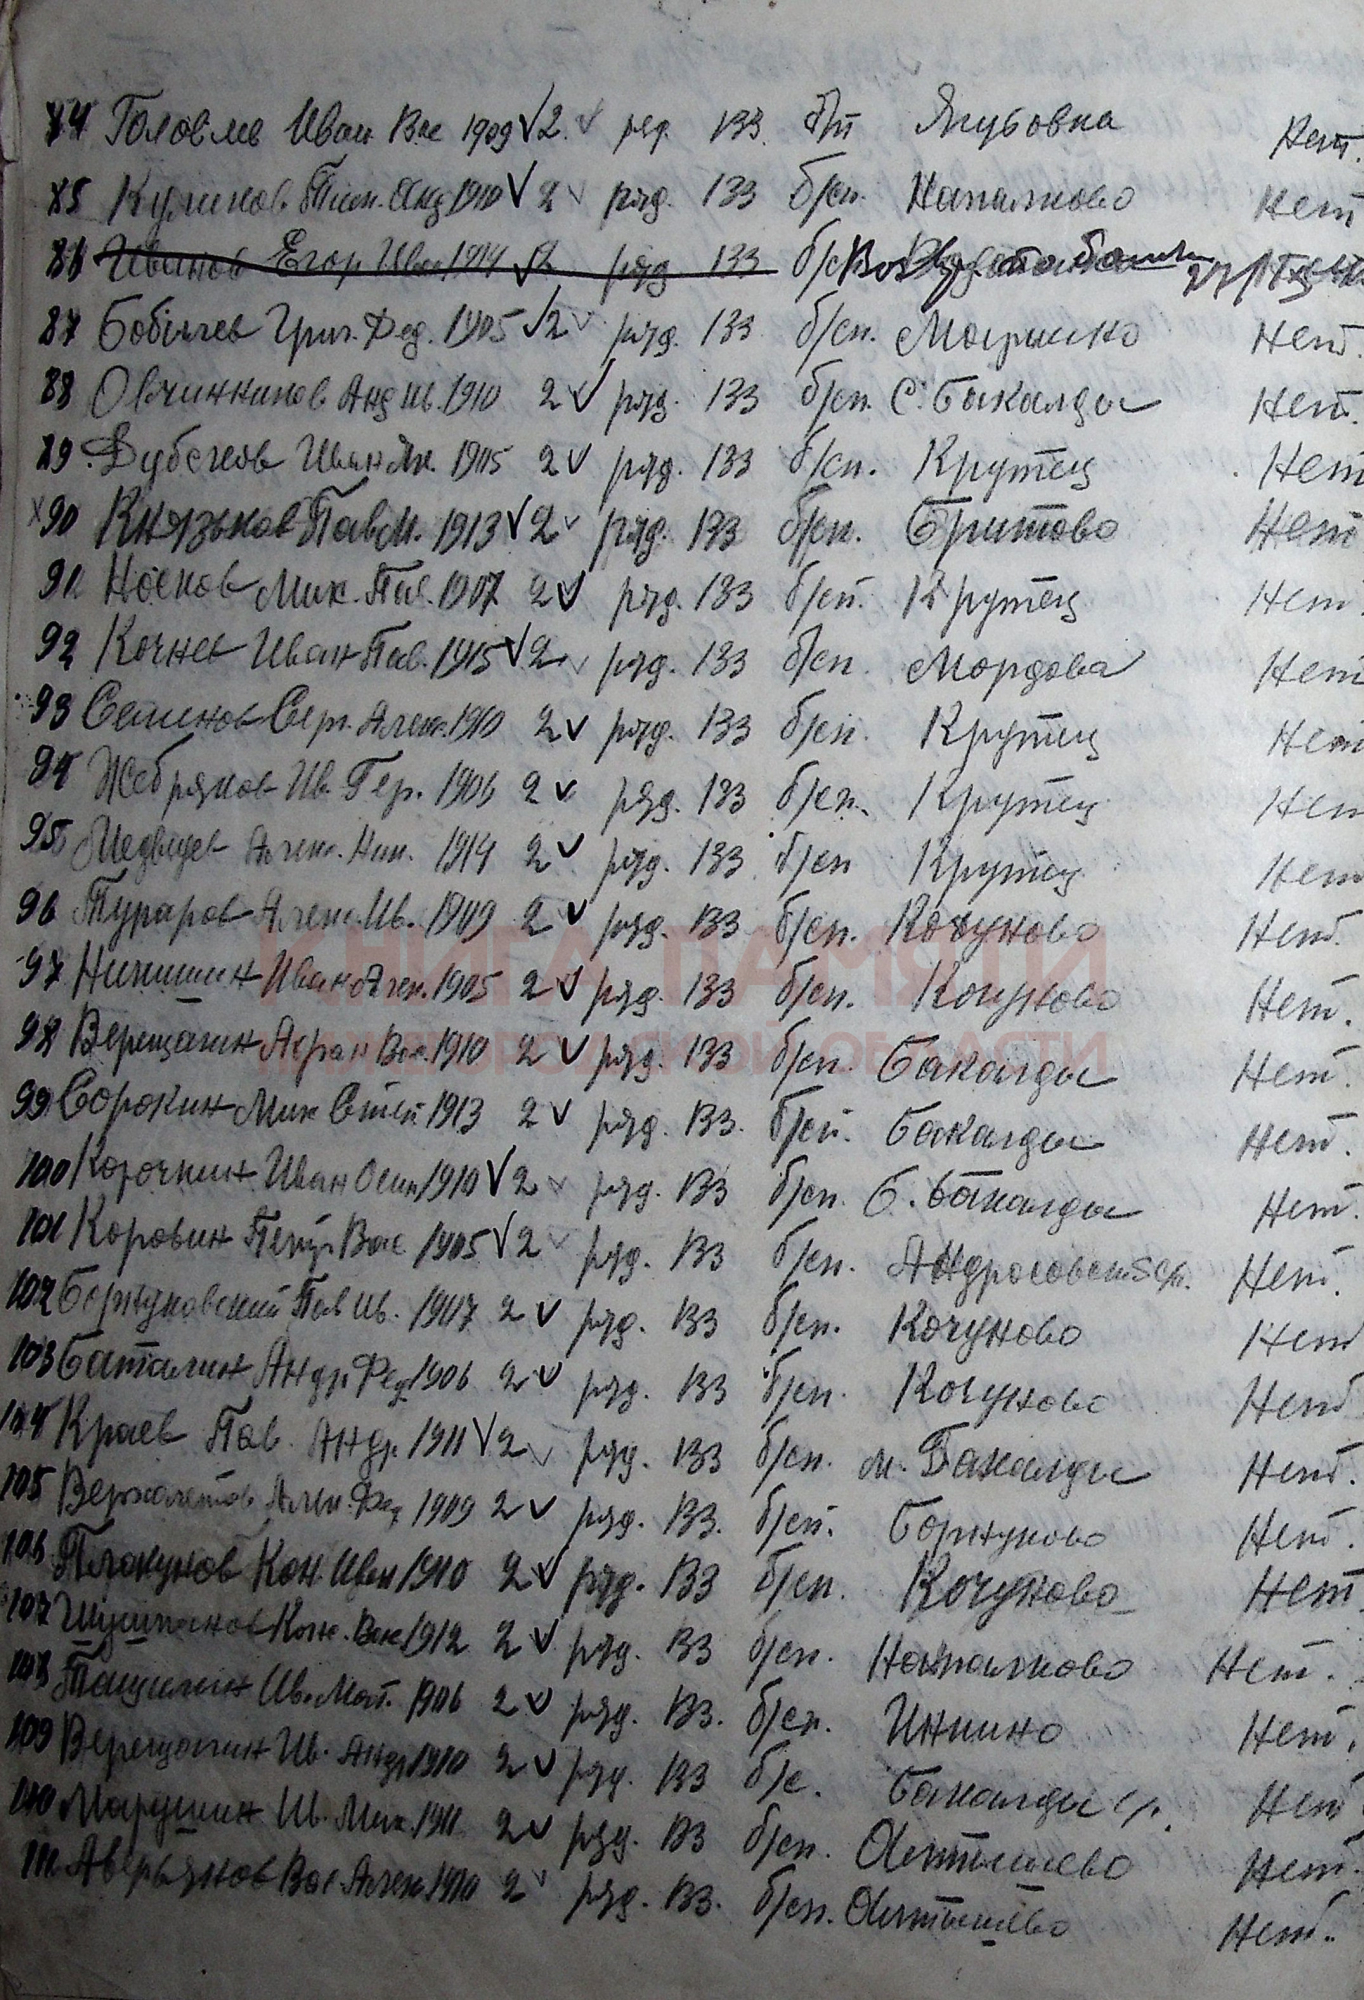 84 Головлев Иван Вас 1909 √ 2. ряд. 133 Якубовка Нет.
85 Куликов Тим. Анд 1910 √ 2 ряд. 133 б/сп. Напалково Нет
86 Иванов Егор Иван 1914 √ 2 ряд 133
87 Бобылев Григ. Фед. 1905 √ 2 ряд. 133 б/сп. Нет.
88 Овчинников Анд Ив. 1910 2 √ ряд. 133 б/сп. С. Бакалды Нет.
89 Иван Як. 1905 2 √ ряд. 133 б/сп. Крутец Нет
90 Князьков Пав М. 1913 √ 2 ряд. 133 б/сп. Бритово Нет
91 Носков Мих. Пав. 1907 2 √ ряд. 133 б/сп. Крутец Нет
92 Кочнев Иван Пав. 1915 √ 2 ряд. 133 б/сп. Мордова Нет
93 Семенов Сер. Алек. 1910 2 √ ряд. 133 б/сп. Крутец Нет
94 Жебряков Ив. Гер. 1906 2 √ ряд. 133 б/сп. Крутец Нет
95 Медведев Алек. Ник. 1914 2 √ ряд. 133 б/сп Крутец Нет
96 Алек. Ив. 1909 2 √ ряд. 133 б/сп. Кочуново Нет.
97 Никишин Иван Алек. 1905 2 √ ряд. 133 б/сп. Кочуново Нет.
КНИГА ПАМЯТИ
98 Верещагин Вас. 1910 2 √ ряд. 133 б/сп. Бакалды Нет.
НИЖЕГОРОДСКОЙ ОБЛАСТИ
99 Сорокин Мих Степ 1913 2 √ ряд. 133. б/сп. Бакалды Нет.
100 Корочкин Иван Осип 1910 √ 2 ряд. 133 б/сп. Б. Бакалды Нет.
101 Коровин Петр Вас 1905 √ 2 ряд. 133 б/сп. Нет.
102 Бортуковский Пав Ив. 1907 2 √ ряд. 133 б/сп. Кочуново Нет
103 Баталин Андр. Фед. 1906 2 √ ряд. 133 б/сп. Кочуново Нет
104 Краев Пав. Андр. 1911 √ 2 ряд. 133 б/сп. М. Бакалды Нет.
105 Алек. Фед 1909 2 √ ряд. 133. б/сп. Нет.
106 Плакунов Кон Иван 1910 2 √ ряд. 133 б/сп. Кочуново Нет.
107 Вас 1912 2 √ ряд. 133 б/сп. Напалково Нет.
108 Ив. Мат. 1906 2 √ ряд. 133. б/сп. Инкино Нет.
109 Верещагин Ив. Андр 1910 2 √ ряд. 133 б/с. Бакалды Нет
110 Марушин Ив. Мих. 1911 2 √ ряд. 133 б/сп. Алтышево Нет.
111 Аверьянов Вас. Алек. 1910 2 ряд. 133. б/сп. Алтышево Нет.